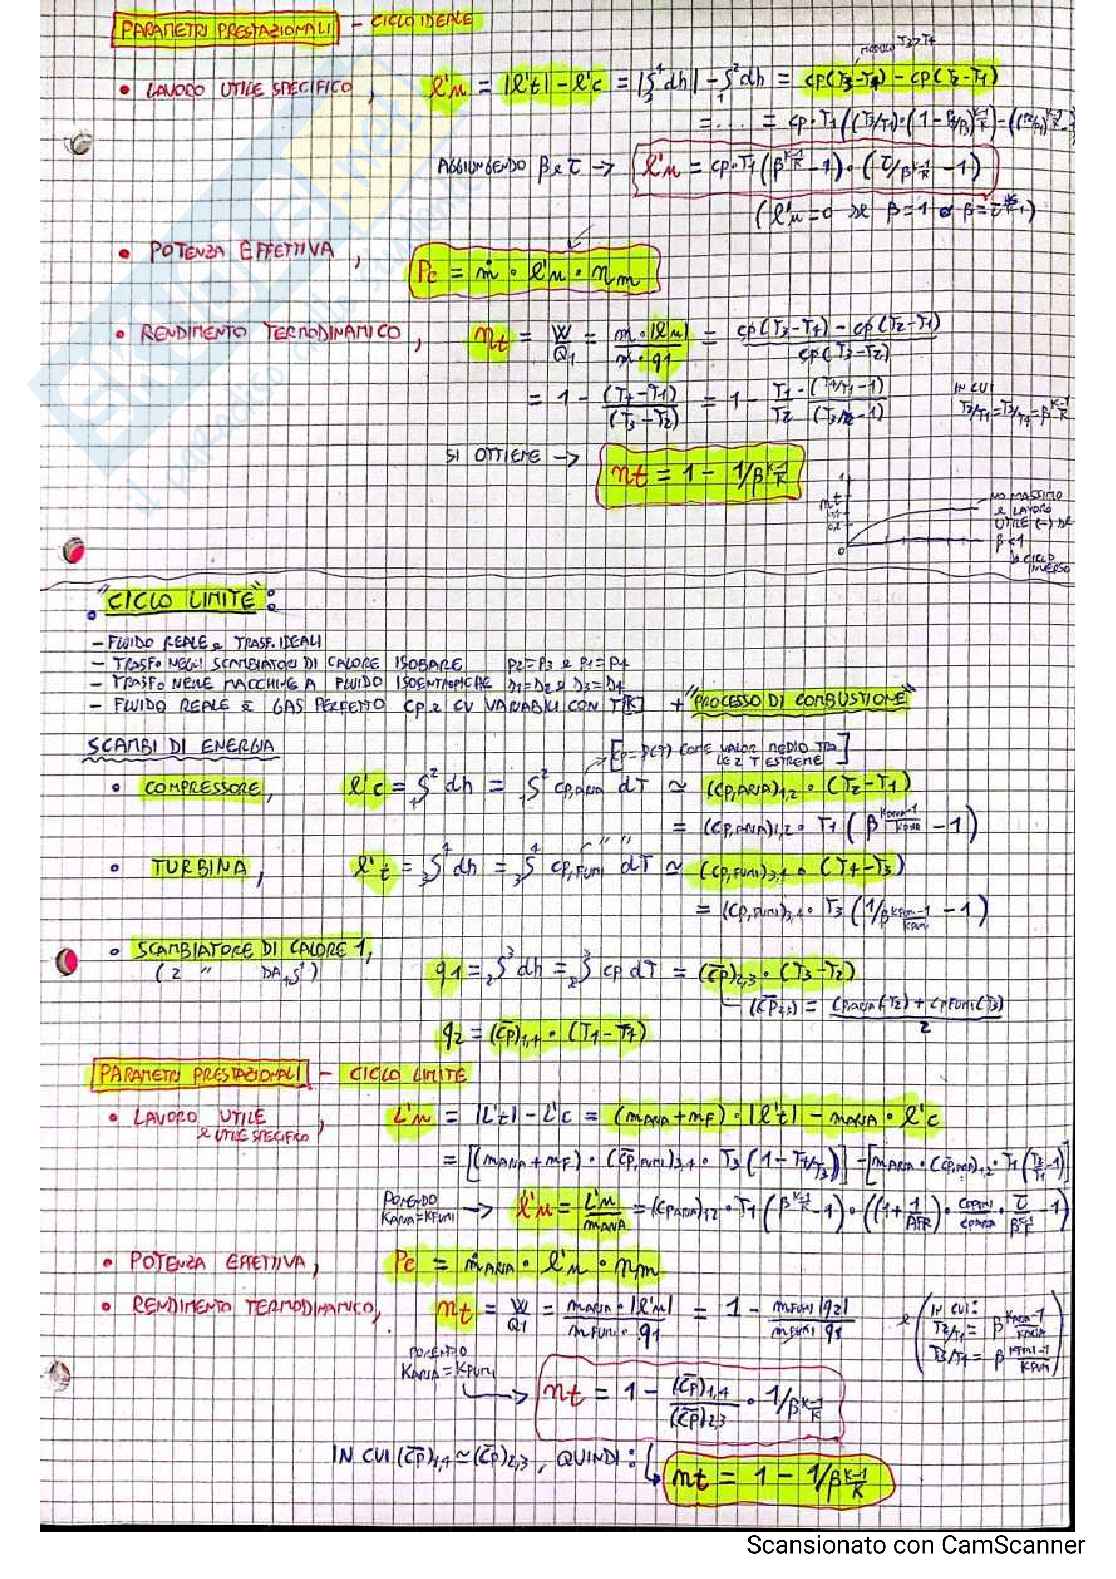 PARAMETRI PRESTAZIONALI - CICLO IDEALE
• LAVORO UTILE SPECIFICO, l'u = |l't| - l'c = |₃∫⁴dh| - ₁∫²dh = cp(T3-T4) - cp(T2-T1)
T3>T4
= .... = cp·T1((T3/T1)·(1-
AGGIUNGENDO β e τ → l'u = cp·T1(β^(K-1/K) - 1)·(τ/β^(K-1/K) - 1)
(l'u=0 se β=1 o β=
• POTENZA EFFETTIVA, Pe = ṁ · l'u · ηm
• RENDIMENTO TERMODINAMICO, ηt = W/Q1 = ṁ·|l'u|/ṁ·q1 = cp(T3-T4) - cp(T2-T1)/cp(T3-T2)
= 1 - (T4-T1)/(T3-T2) = 1 - T1/T2 · (T4/T1-1)/(T3/T2-1)
IN CUI
T2/T1=T3/T4=β^(K-1/K)
SI OTTIENE → ηt = 1 - 1/β^(K-1/K)
ηt
1
0
NO MASSIMO
e LAVORO
UTILE (-) SE
β<1
CICLO
INVERSO
• "CICLO LIMITE":
- FLUIDO REALE e TRASF. IDEALI
- TRASF. NEGLI SCAMBIATORI DI CALORE ISOBARE p2=p3 e p1=p4
- TRASF. NELLE MACCHINE A FLUIDO ISOENTROPICHE s1=s2 e s3=s4
- FLUIDO REALE e GAS PERFETTO cp e cv VARIABILI CON T[K] + "PROCESSO DI COMBUSTIONE"
SCAMBI DI ENERGIA
[cp=p(T) COME VALOR MEDIO TRA
LE 2 T ESTREME]
• COMPRESSORE, l'c = ₁∫²dh = ₁∫² cp,ARIA dT ≃ (cp,ARIA)1,2 · (T2-T1)
= (cp,ARIA)1,2 · T1(β^(KARIA-1/KARIA) - 1)
" "
• TURBINA, l't = ₃∫⁴dh = ₃∫⁴ cp,FUMI dT ≃ (cp,FUMI)3,4 · (T4-T3)
= (cp,FUMI)3,4 · T3(1/β^(KFUMI-1/KFUMI) - 1)
• SCAMBIATORE DI CALORE 1, q1 = ₂∫³dh = ₂∫³ cp dT = (c̄p)2,3 · (T3-T2)
(2 " DA ₄∫¹)
(c̄p2,3) = cpARIA(T2) + cpFUMI(T3)/2
q2 = (c̄p)4,1 · (T1-T4)
PARAMETRI PRESTAZIONALI - CICLO LIMITE
• LAVORO UTILE, L'u = |L't| - L'c = (mARIA+mF)·|l't| - mARIA·l'c
e UTILE SPECIFICO
= [(mARIA+mF)·(c̄p,FUMI)3,4 · T3(1-T4/T3)] - [mARIA·(c̄p,ARIA)1,2·T1(T2/T1-1)]
PONENDO
KARIA=KFUMI → l'u = L'u/mARIA = (cpARIA)1,2·T1(β^(K-1/K)-1)·((1+1/AFR)·cpFUMI/cpARIA·τ/β^(K-1/K)-1)
• POTENZA EFFETTIVA, Pe = ṁARIA · l'u · ηm
• RENDIMENTO TERMODINAMICO, ηt = W/Q1 = mARIA·|l'u|/mFUMI·q1 = 1 - mFUMI|q2|/mFUMI q1
e (IN CUI:
T2/T1= β^(KARIA-1/KARIA)
T3/T4= β^(KFUMI-1/KFUMI))
PONENDO
KARIA=KFUMI → ηt = 1 - (c̄p)1,4/(c̄p)2,3 · 1/β^(K-1/K)
IN CUI (c̄p)4,1≃(c̄p)2,3, QUINDI: ηt = 1 - 1/β^(K-1/K)
Scansionato con CamScanner